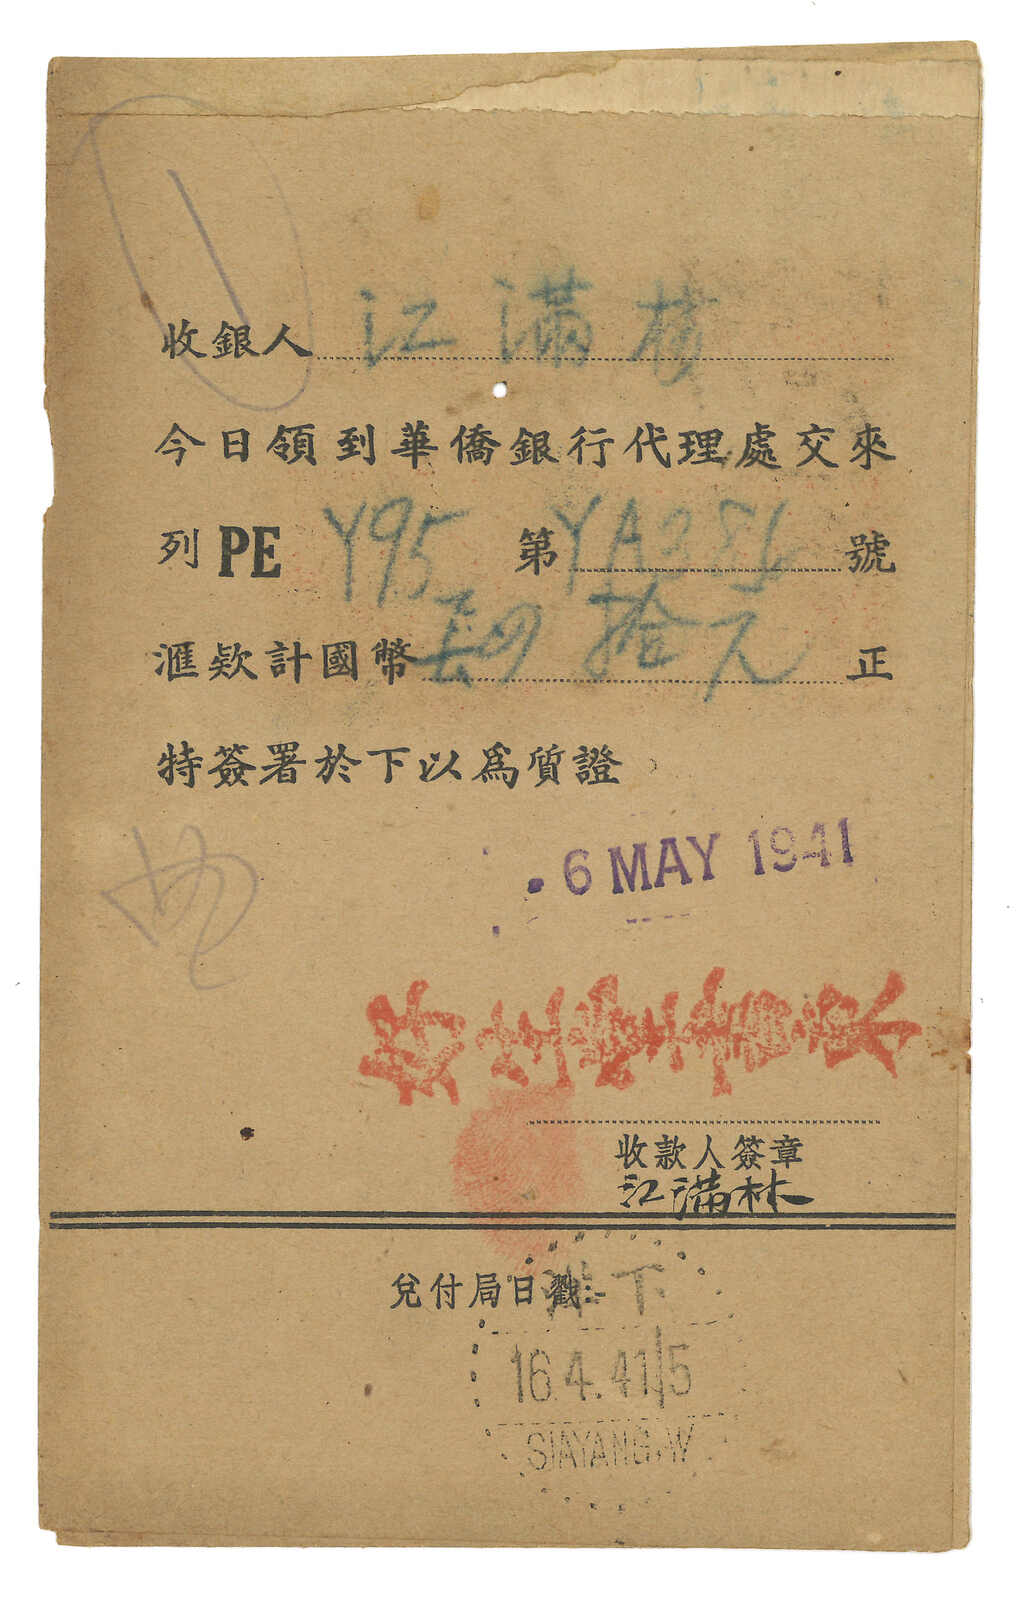 收銀人 江滿
今日領到華僑銀行代理處交來
列 PE Y95 第 YA286 號
滙欵計國幣 拾元 正
特簽署於下以爲質證
6 MAY 1941
收款人簽章
江滿林
兌付局日戳:-
下
16.4.41/5
SIAYANG.W